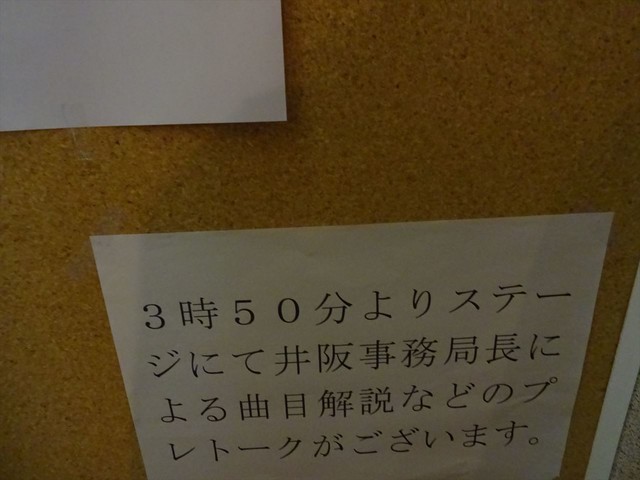 ３時５０分よりステー
ジにて井阪事務局長に
よる曲目解説などのプ
レトークがございます。